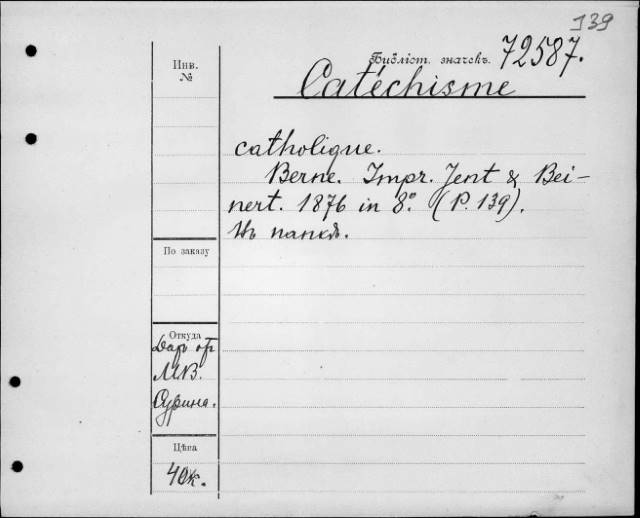 139
Библіот. значекъ. 72587.
Инв.
№
Catéchisme
catholique.
Berne. Impr. Jent & Bei-
nert. 1876 in 8º. (P. 139).
Въ папкѣ.
По заказу
Откуда
Даръ
М.В.
Сурина.
Цѣна
40к.